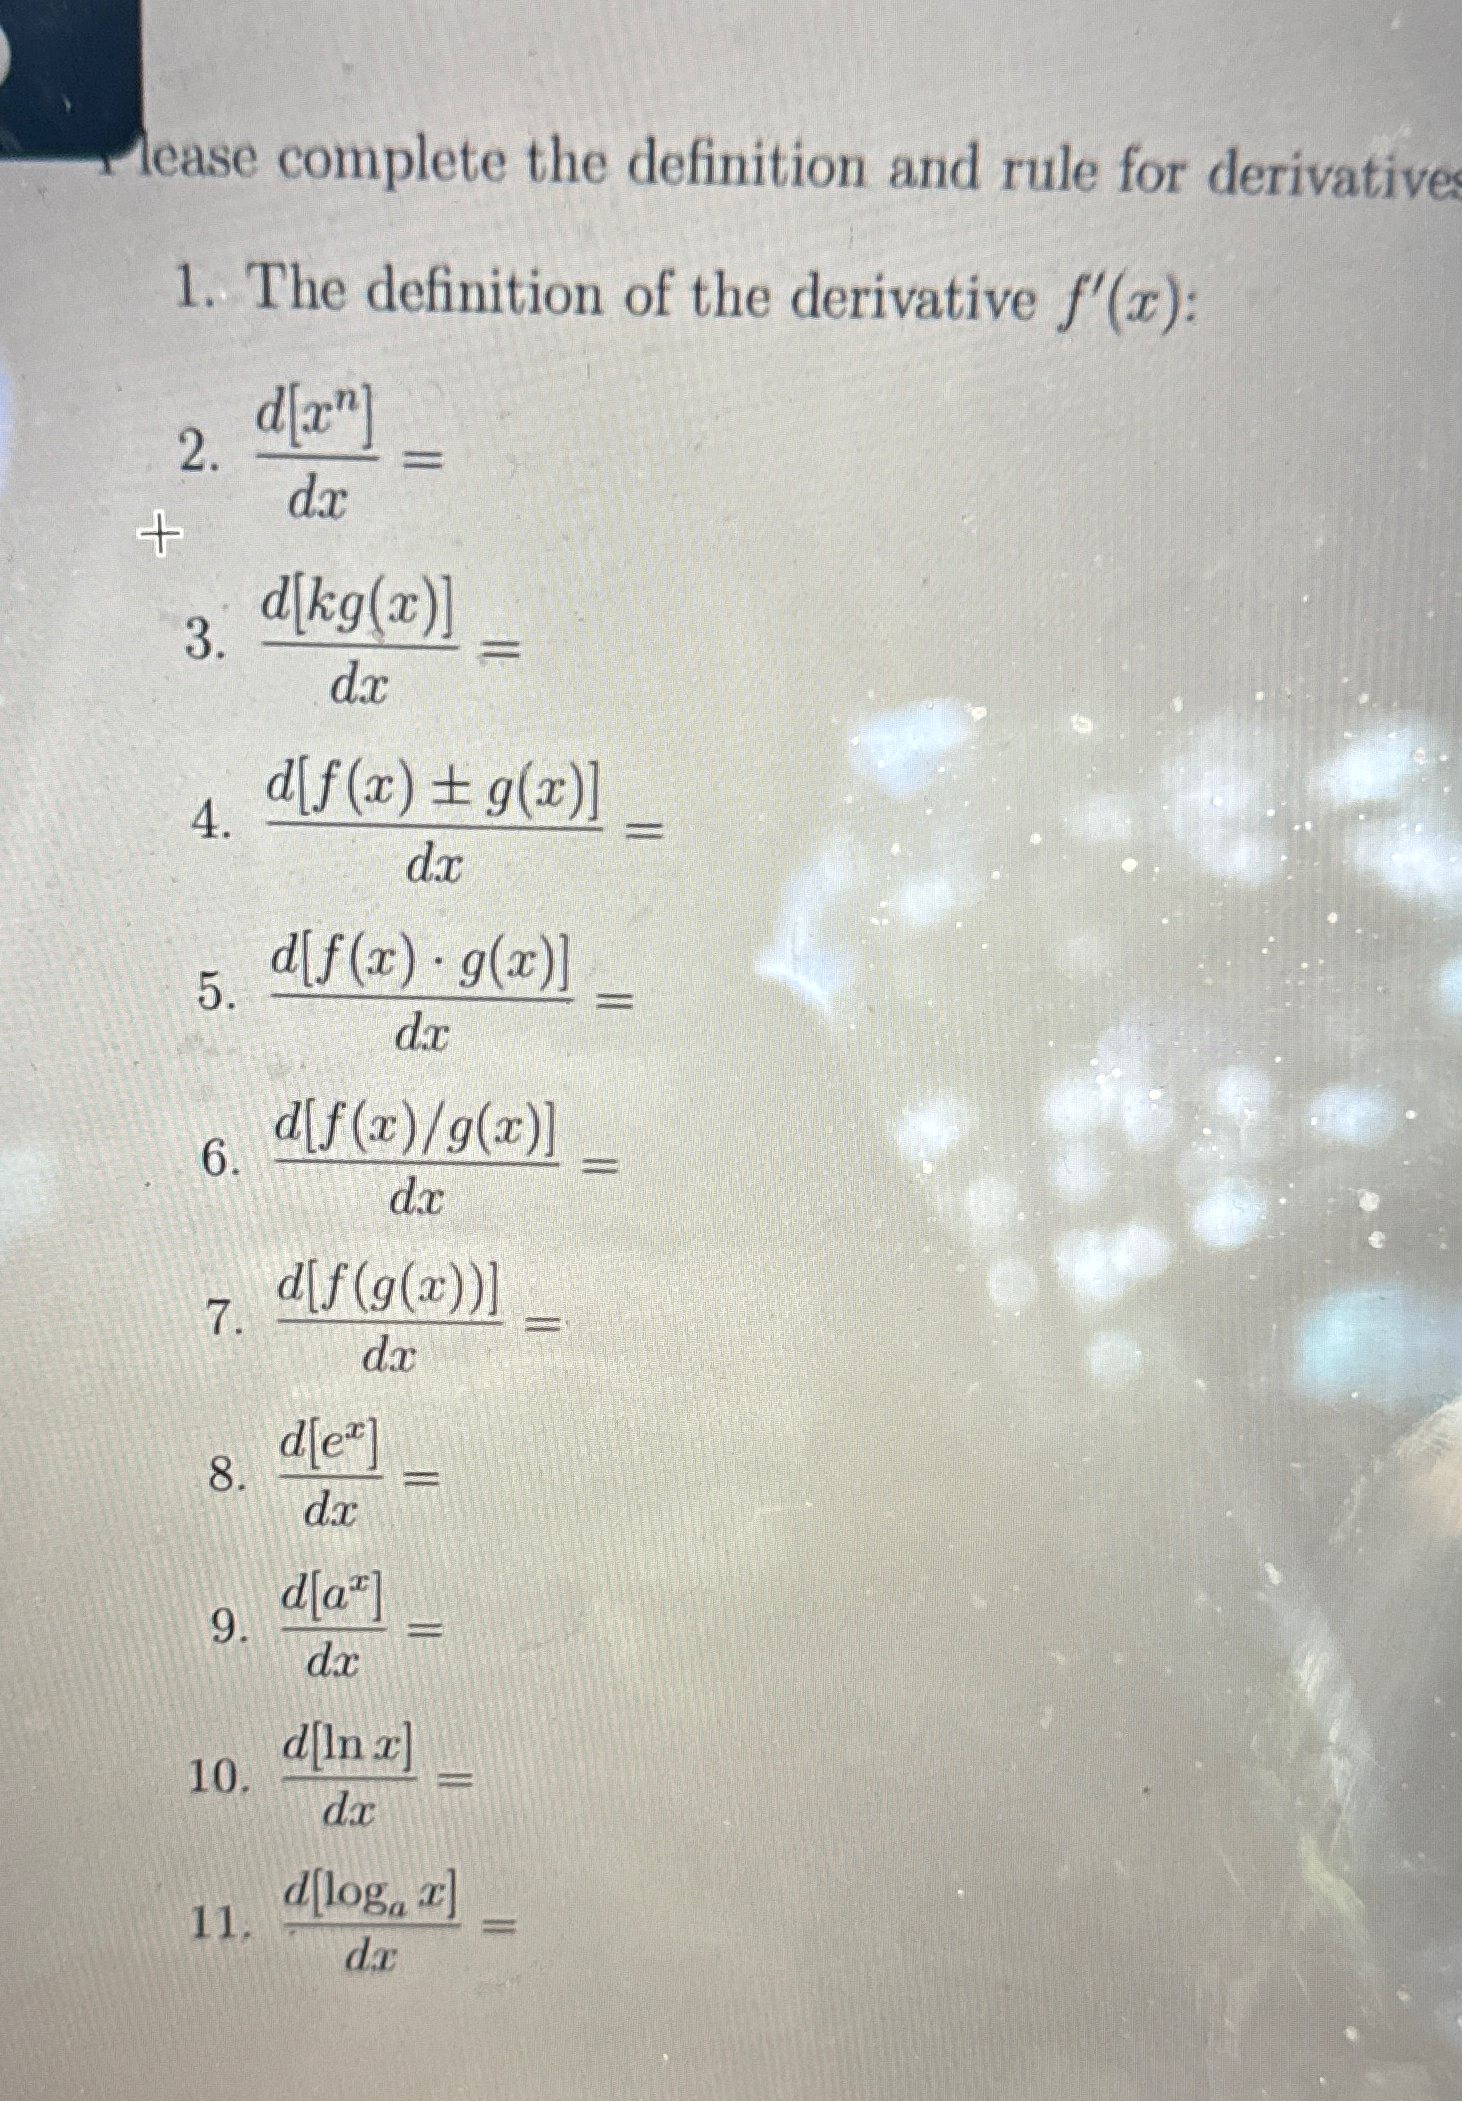 lease complete the definition and rule for derivatives
1. The definition of the derivative f′(x):
2. d[xⁿ]/dx =
3. d[kg(x)]/dx =
4. d[f(x) ± g(x)]/dx =
5. d[f(x) · g(x)]/dx =
6. d[f(x)/g(x)]/dx =
7. d[f(g(x))]/dx =
8. d[eˣ]/dx =
9. d[aˣ]/dx =
10. d[ln x]/dx =
11. d[logₐ x]/dx =